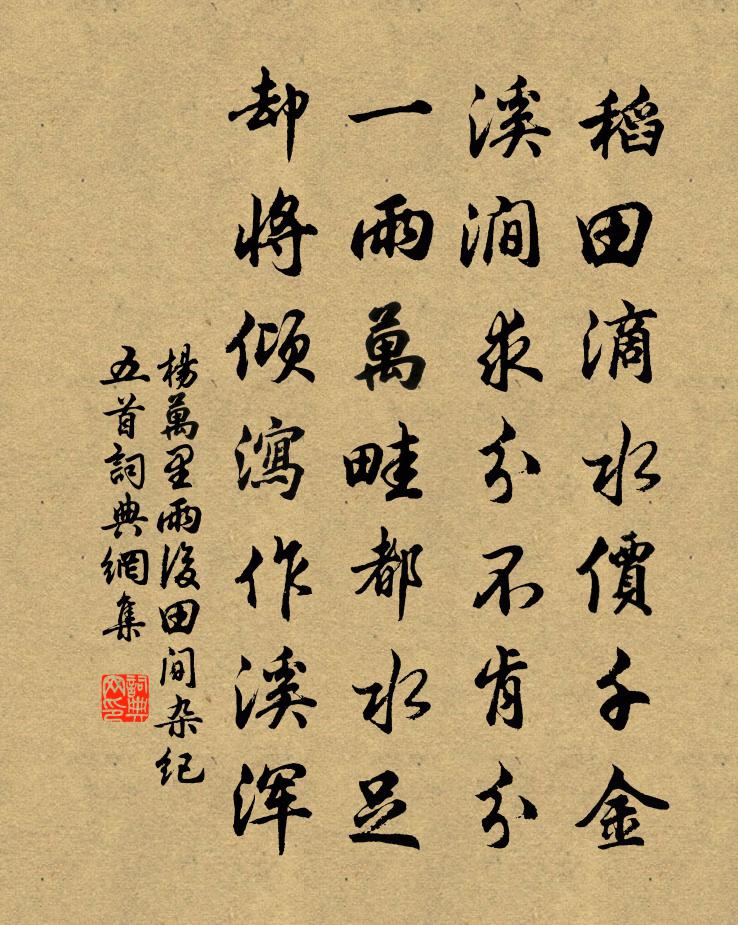 稻田滴水價千金
溪澗求分不肯分
一雨萬畦都水足
却將傾瀉作溪渾
楊萬里雨後田间杂纪
五首詞典網集
詞典
网印